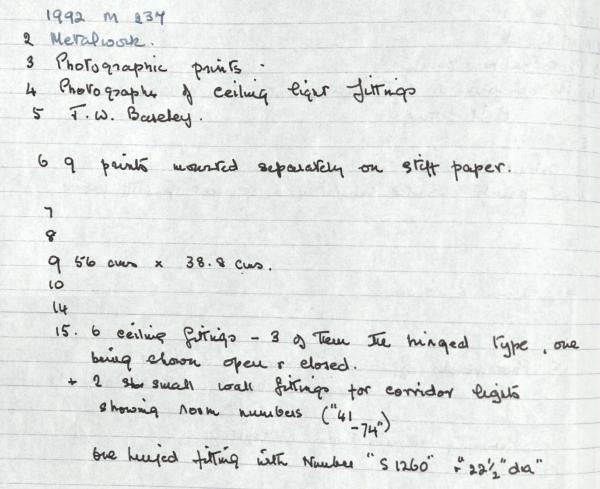 1992 M 237
2 Metalwork.
3 Photographic prints.
4 Photographs of ceiling light fittings
5 F.W. Baseley.
6 9 prints mounted separately on stiff paper.
7
8
9 56 cms x 38.8 cms.
10
14
15. 6 ceiling fittings - 3 of them the hinged type, one
being shown open & closed.
+ 2 small wall fittings for corridor lights
showing room numbers ("41
-74")
One hinged fitting with Number "S 1260" + "22½" dia"